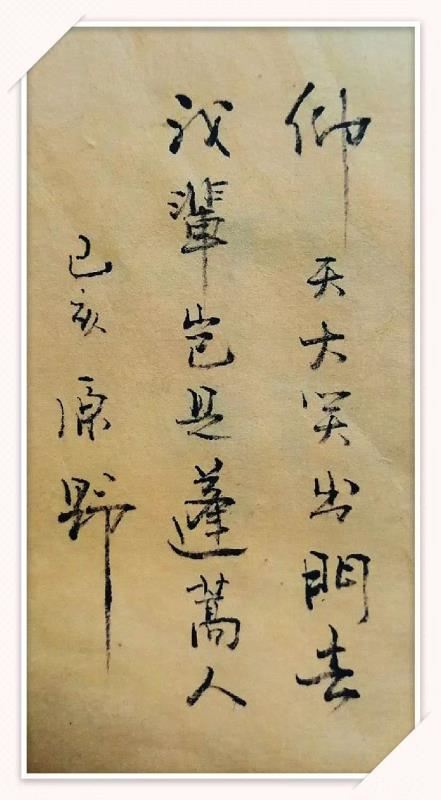 仰天大笑出門去
我輩豈是蓬蒿人
己亥原野